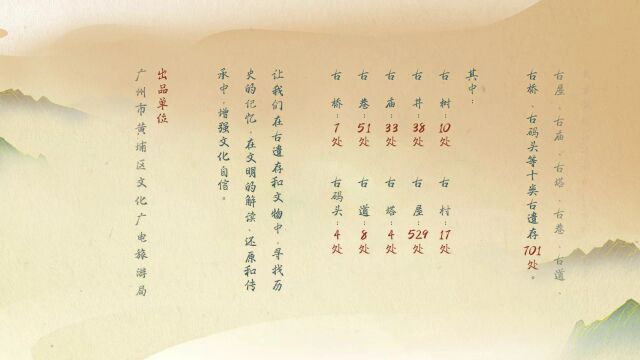 古屋、古庙、古塔、古巷、古道、
古桥、古码头等十类古遗存701处。
其中：
古树：10处
古村：17处
古井：38处
古屋：529处
古庙：33处
古塔：4处
古巷：51处
古道：8处
古桥：7处
古码头：4处
让我们在古遗存和文物中，寻找历
史的记忆，在文明的解读、还原和传
承中，增强文化自信。
出品单位
广州市黄埔区文化广电旅游局